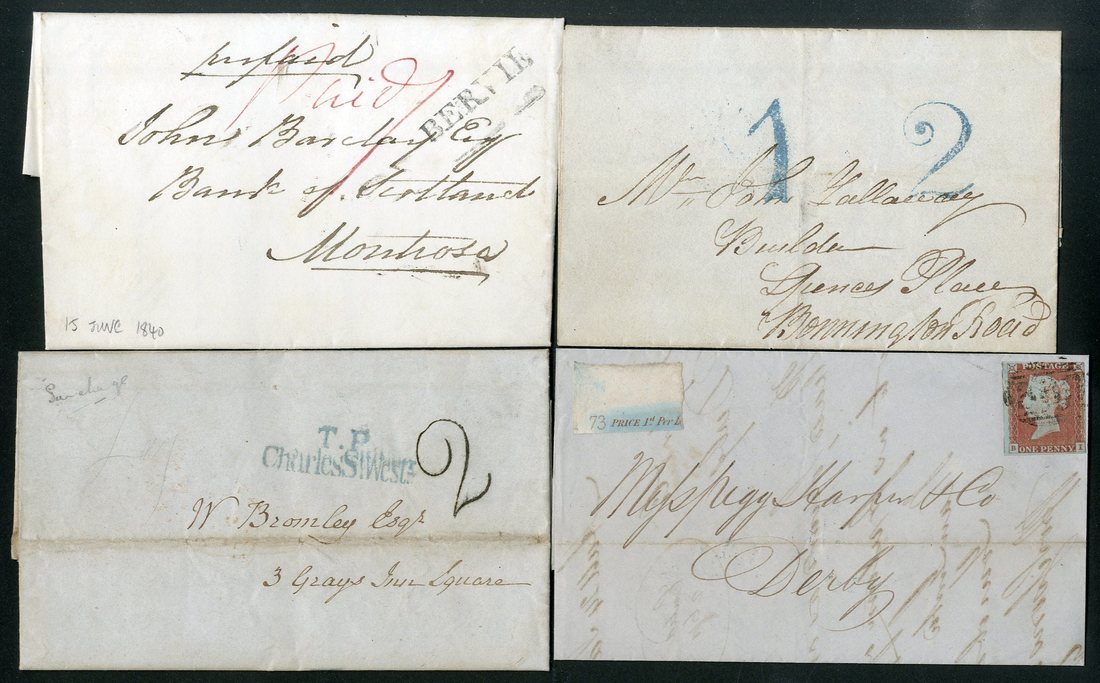 prepaid
Paid 1
BERVIE
John Barclay Esq
Bank of Scotland
Montrose
15 JUNE 1840
1 2
Mr John Gallaway
Builder
Spences Place
Bonnington Road
Surcharge
T.P
Charles St Westr
2
W Bromley Esqr
3 Grays Inn Square
73 PRICE 1d Per L
POSTAGE
B I
ONE PENNY
Messrs Pegg Harper & Co
Derby